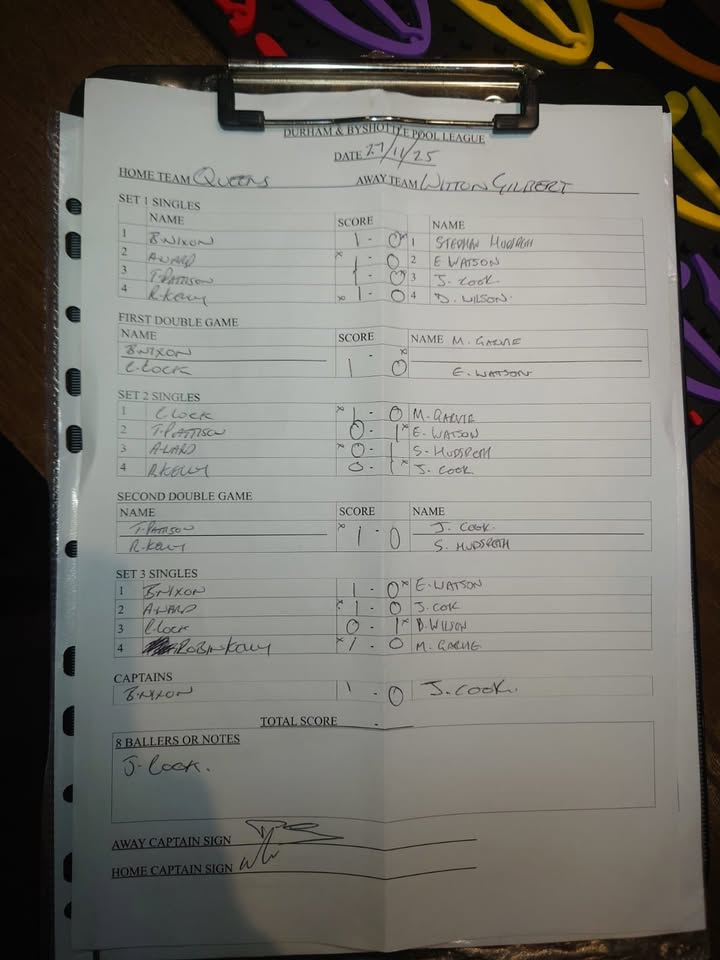 DURHAM & BYSHOTTLE POOL LEAGUE
DATE 27/11/25
HOME TEAM QUEENS AWAY TEAM WITTON GILBERT
SET 1 SINGLES
NAME SCORE NAME
1 B.NIXON 1 - 0 x 1 STEPHAN HUDSPETH
2 A.WARD x 1 - 0 2 E WATSON
3 T.PATTISON 1 - 0 x 3 J. COOK
4 R.KELLY x 1 - 0 4 D. WILSON.
FIRST DOUBLE GAME
NAME SCORE NAME M. GARVIE
B.NIXON - x
C.LOCK 1 0 E. WATSON
SET 2 SINGLES
1 C.LOCK x 1 - 0 M. GARVIE
2 T.PATTISON 0 - 1 x E. WATSON
3 A.WARD x 0 - 1 S. HUDSPETH
4 R.KELLY 0 - 1 x J. COOK
SECOND DOUBLE GAME
NAME SCORE NAME
T.PATTISON x 1 - 0 J. COOK.
R.KELLY S. HUDSPETH
SET 3 SINGLES
1 B.NIXON 1 - 0 x E. WATSON
2 A.WARD x 1 - 0 J. COOK
3 C.LOCK 0 - 1 x D. WILSON
4 ROBIN KELLY x 1 - 0 M. GARVIE
CAPTAINS
B.NIXON 1 - 0 J. COOK.
TOTAL SCORE -
8 BALLERS OR NOTES
J. COOK.
AWAY CAPTAIN SIGN
HOME CAPTAIN SIGN